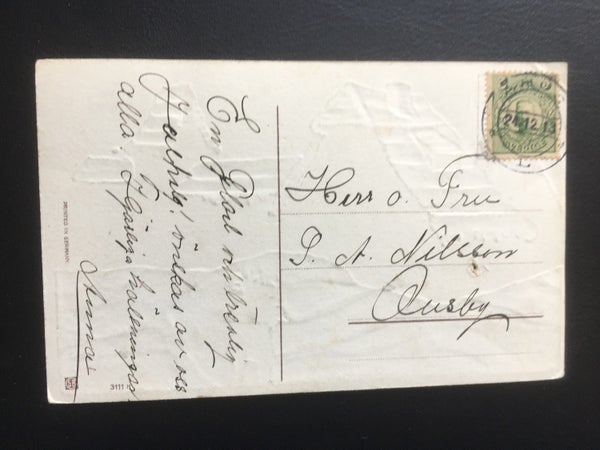 En Glad och trevlig
Julhelg! önskas av oss
alla. Hjärtliga hälsningar
Anna
Herr o. Fru
P. A. Nilsson
Ousby
24.12.13
SVERIGE
PRINTED IN GERMANY
3111